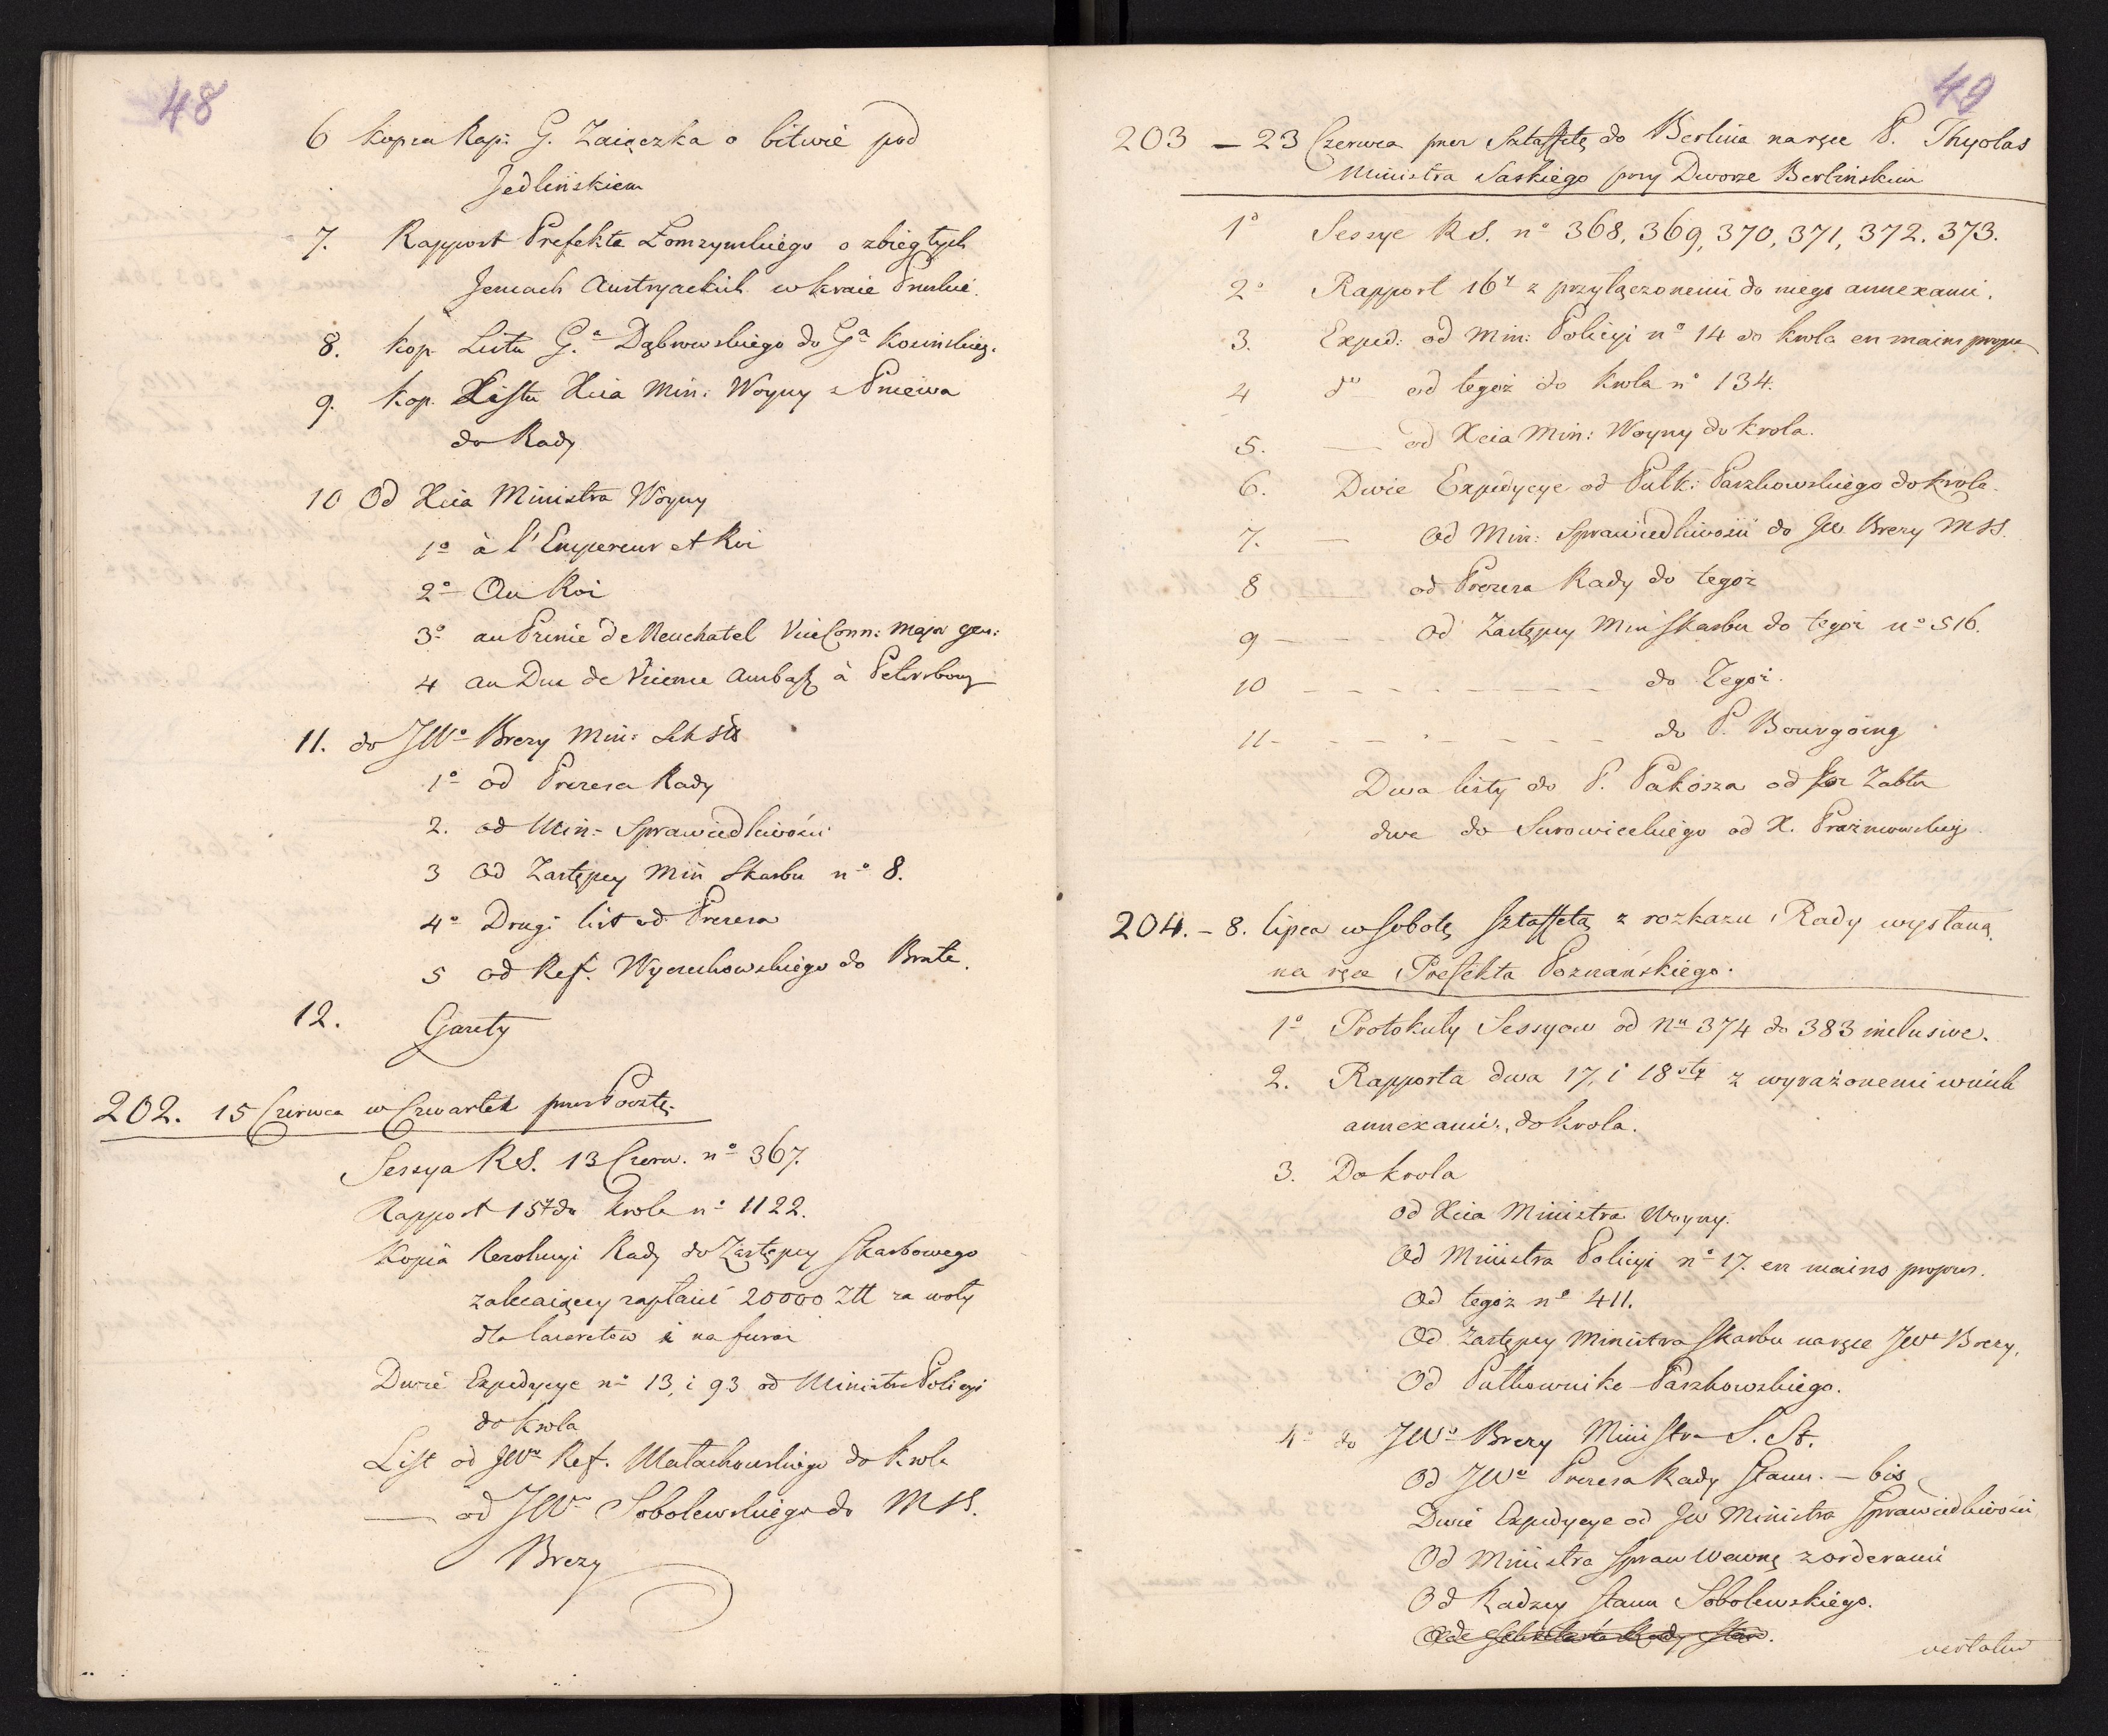 48
6 kopia Rap: G. Zaiączka o bitwie pod
Jedlińskiem
7. Rapport Prefekta Łomzynskiego o zbiegłych
Jencach Austryackich w kraie Pruskie.
8. kop. Listu G.ª Dąbrowskiego do Gª Kosinskieg.
9. kop. Listu Xcia Min: Woyny z Pniewa
do Rady
10 Od Xcia Ministra Woyny
1º à l'Empereur et Roi
2º Au Roi
3º au Prince de Neuchatel Vice Conn: Major gen:
4 au Duc de Vicence Ambass à Petersbourg
11. do JWº Brezy Min: Sek Sta
1º od Prezesa Rady
2. od Min: Sprawiedliwosci
3 Od Zastępcy Min Skarbu nº 8.
4º Drugi list od Prezesa
5 od Ref. Wyczechowskiego do Brata.
12. Gazety
202. 15 Czerwca w Czwartek przez Pocztę
Sessya RS. 13 Czerw. nº 367.
Rapport 15ty do Krola nº 1122.
Kopia Rezolucyi Rady do Zastępcy Skarbowego
zalecaiącey zapłacić 20000 Złł za woły
dla lazaretow i na furaż
Dwie Expedycye nº 13, i 93 od Ministra Policyi
do Krola
List od JWº Ref. Małachowskiego do Krola
— od JWº Sobolewskiego do MSS.
Brezy
49
203 — 23 Czerwca przez Sztaffetę do Berlina na ręce P. Thyolas
Ministra Saskiego przy Dworze Berlinskim
1º Sessye RS. nº 368, 369, 370, 371, 372. 373.
2º Rapport 16ty z przyłączonemi do niego annexami.
3. Exped: od Min: Policyi nº 14 do krola en mains propre
4 dº od tegoż do Krola nº 134.
5. — od Xcia Min: Woyny do Krola.
6. Dwie Expedycye od Pułk: Paszkowskiego do Krola.
7. — Od Min: Sprawiedliwosci do JW Brezy MSS.
8 — od Prezesa Rady do tegoż
9 — Od Zastępcy Min Skarbu do tegoż nº 516.
10 — do Tegoż.
11 — do P. Bourgoing
Dwa listy do P. Pakosza od Zabłu
dwa do Surowieckiego od X. Prażmowskieg.
204. — 8. lipca w Sobotę Sztaffetą z rozkazu Rady wysłaną
na ręce Prefekta Poznańskiego.
1º Protokuły Sessyow od Nu 374 do 383 inclusive.
2. Rapporta dwa 17, i 18sty z wyrażonemi w nich
annexami, do krola.
3. Do krola
od Xcia Ministra Woyny.
Od Ministra Policyi nº 17. en mains propres.
Od tegoż nº 411.
Od Zastępcy Ministra Skarbu na ręce JWº Brezy.
Od Pułkownika Paszkowskiego.
4º do JWº Brezy Ministra S. St.
Od JWº Prezesa Rady Stanu. — bis
Dwie Expedycye od JW Ministra Sprawiedliwosci
Od Ministra Spraw Wewnę z orderami
Od Radzcy Stanu Sobolewskiego.
vertatur